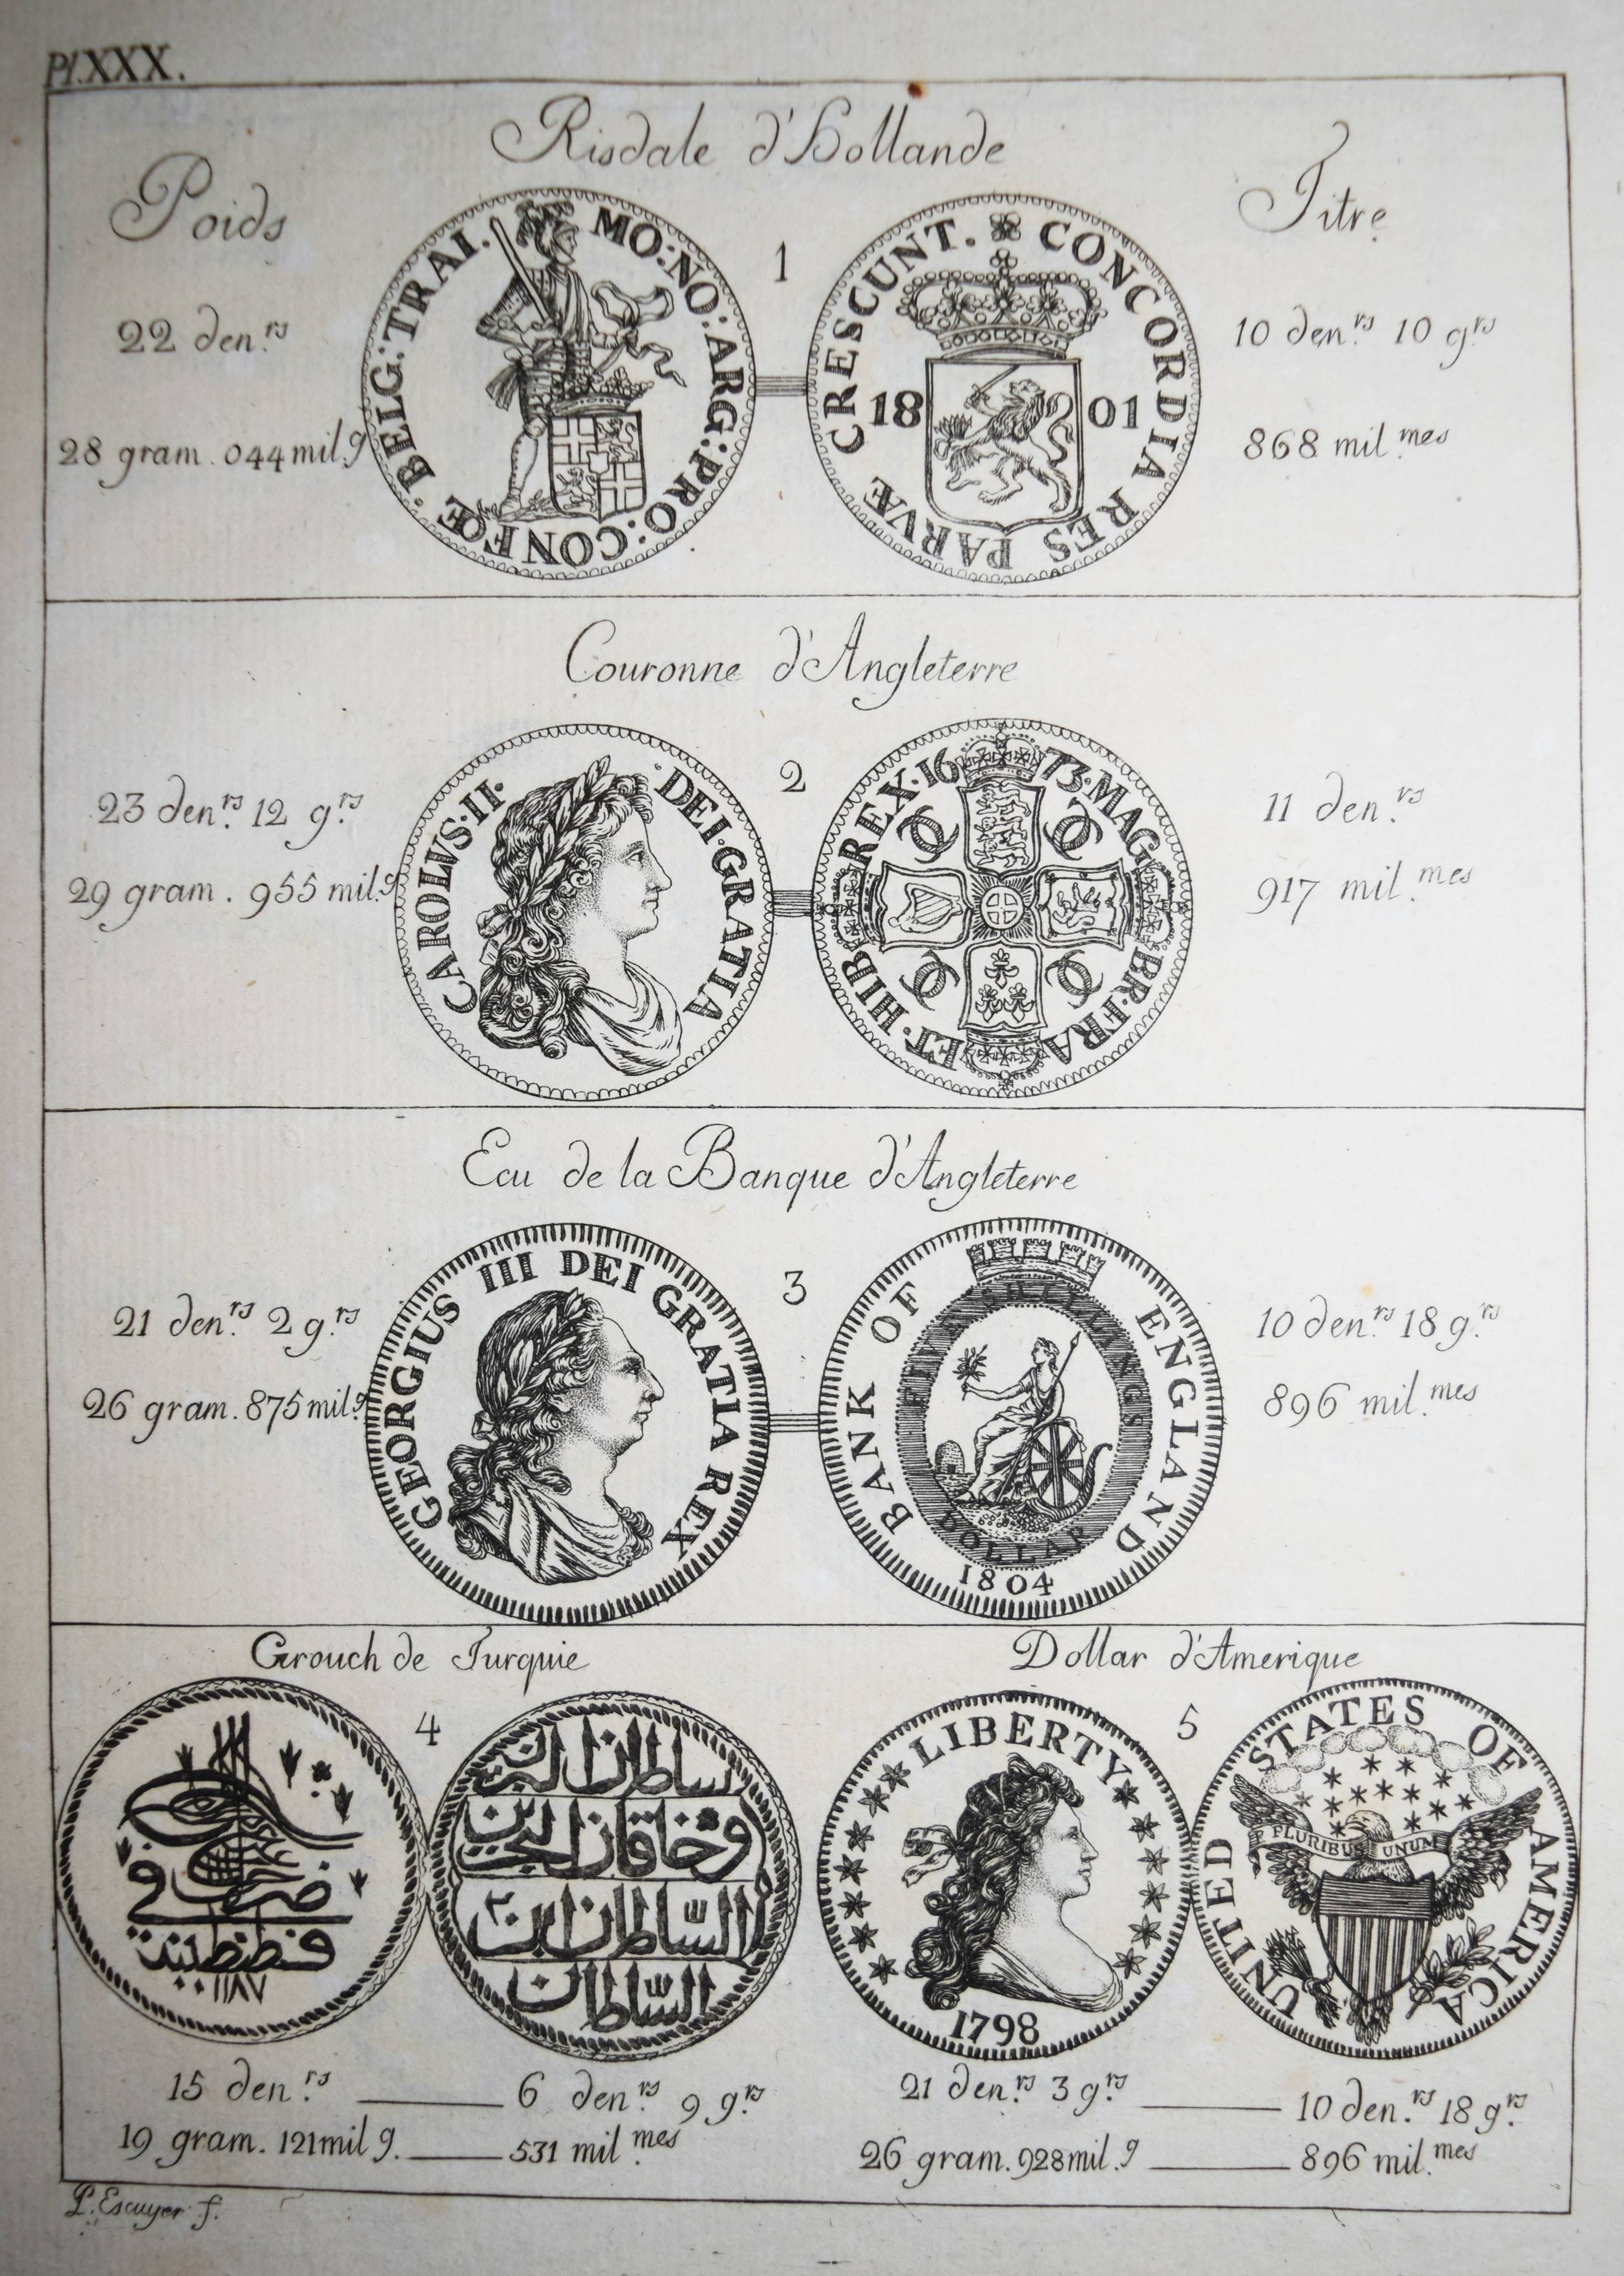 Pl.XXX.
Risdale d'Hollande
Poids
Titre
1
22 den.rs
28 gram. 044 mil.g
MO:NO:ARG:PRO:CONFŒ:BELG:TRAI.
CONCORDIA RES PARVÆ CRESCUNT.
18 01
10 den.rs 10 grs
868 mil.mes
Couronne d'Angleterre
2
23 den.rs 12 g.rs
29 gram. 955 mil.g
CAROLVS·II· DEI·GRATIA
16 73·MAG BR·FRA ET·HIB REX·
11 den.rs
917 mil.mes
Ecu de la Banque d'Angleterre
3
21 den.rs 2 g.rs
26 gram. 875 mil.g
GEORGIUS III DEI GRATIA REX
BANK OF ENGLAND
FIVE SHILLINGS
DOLLAR
1804
10 den.rs 18 g.rs
896 mil.mes
Grouch de Turquie
4
ضرب في
قسطنطينية
١١٨٧
سلطان البرين
وخاقان البحرين
السلطان ابن
السلطان
15 den.rs 6 den.rs 9 g.rs
19 gram. 121 mil g. 531 mil.mes
Dollar d'Amerique
5
LIBERTY
1798
UNITED STATES OF AMERICA
E PLURIBUS UNUM
21 den.rs 3 g.rs 10 den.rs 18 g.rs
26 gram. 928 mil.g 896 mil.mes
P. Escuyer f.